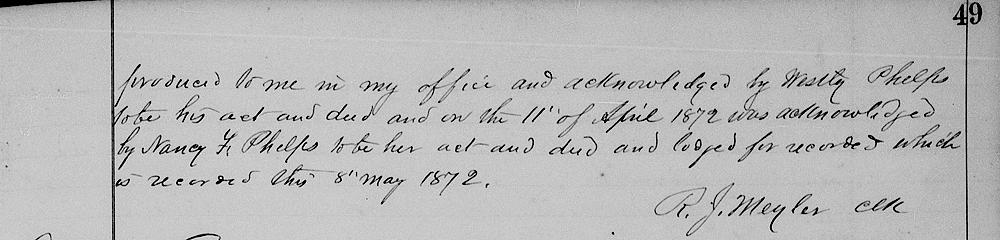 49
produced to me in my office and acknowledged by Westly Phelps
to be his act and deed and on the 11" of April 1872 was acknowledged
by Nancy F. Phelps to be her act and deed and lodged for recorded which
is recorded this 8" may 1872.
R. J. Meyler clk